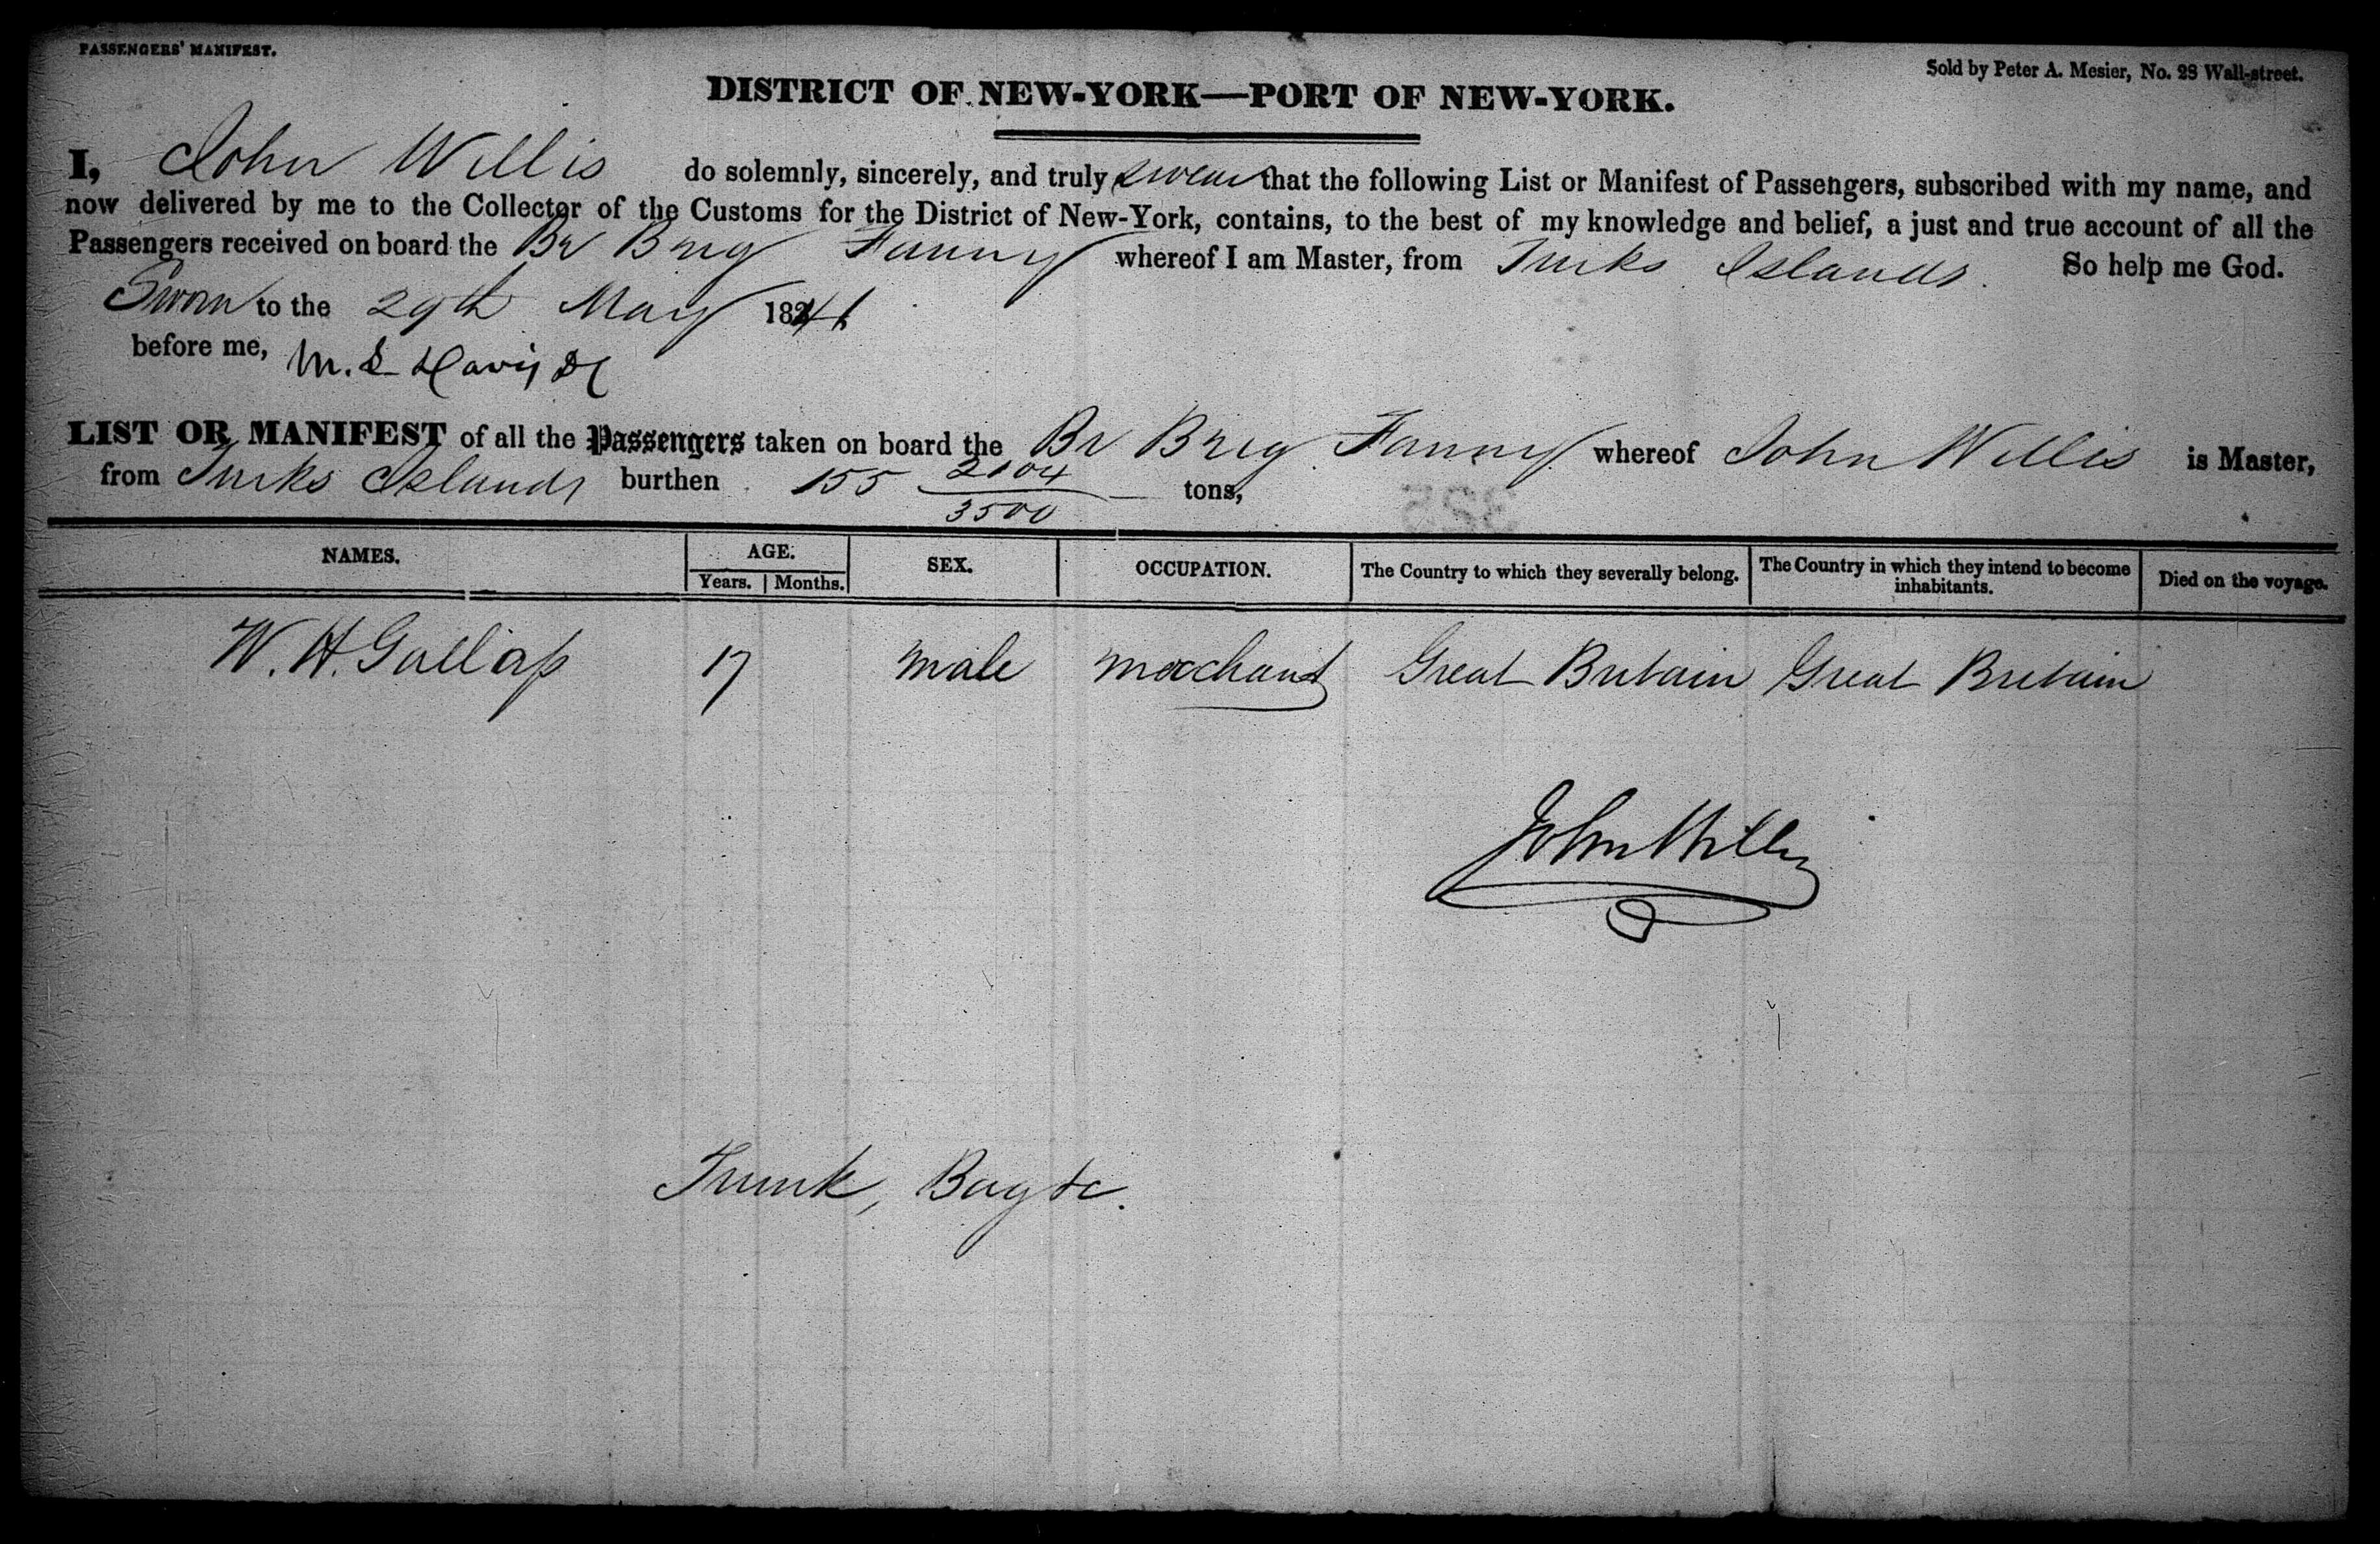 PASSENGERS' MANIFEST.
Sold by Peter A. Mesier, No. 28 Wall-street.
DISTRICT OF NEW-YORK—PORT OF NEW-YORK.
I, John Willis do solemnly, sincerely, and truly swear that the following List or Manifest of Passengers, subscribed with my name, and
now delivered by me to the Collector of the Customs for the District of New-York, contains, to the best of my knowledge and belief, a just and true account of all the
Passengers received on board the Br Brig Fanny whereof I am Master, from Turks Islands. So help me God.
Sworn to the 29th May 1841
before me, M. L Davis
LIST OR MANIFEST of all the Passengers taken on board the Br Brig Fanny whereof John Willis is Master,
from Turks Islands burthen 155 2104/3500 tons,
NAMES. AGE. SEX. OCCUPATION. The Country to which they severally belong. The Country in which they intend to become inhabitants. Died on the voyage.
Years. Months.
W. H. Gallop 17 male merchant Great Britain Great Britain
John Willis
Trunk, Bag &c.